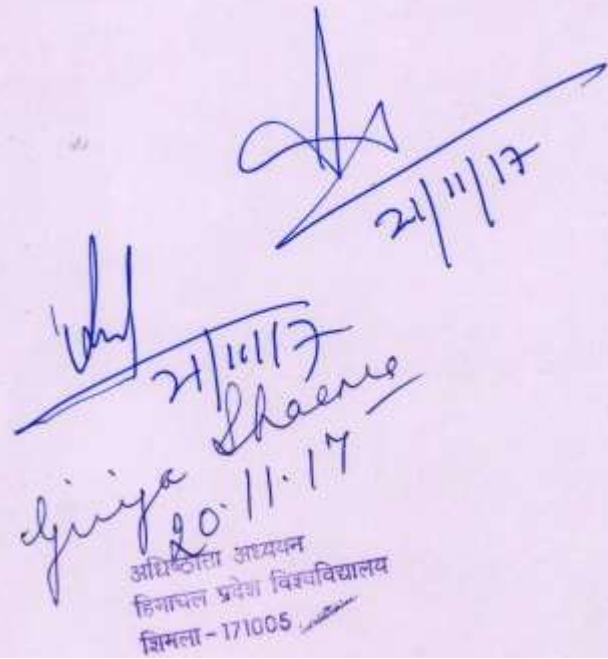 21/11/17
21/11/17
Girija Sharma
20.11.17
अधिष्ठाता अध्ययन
हिमाचल प्रदेश विश्वविद्यालय
शिमला-171005